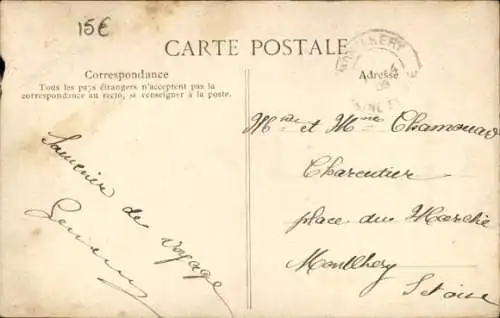 15€
CARTE POSTALE
Correspondance
Tous les pays étrangers n'acceptent pas la
correspondance au recto, se renseigner à la poste.
Adresse
Souvenir de voyage
et Mme Chamouard
Charcutier
place du Marché
Montlhéry
S et Oise